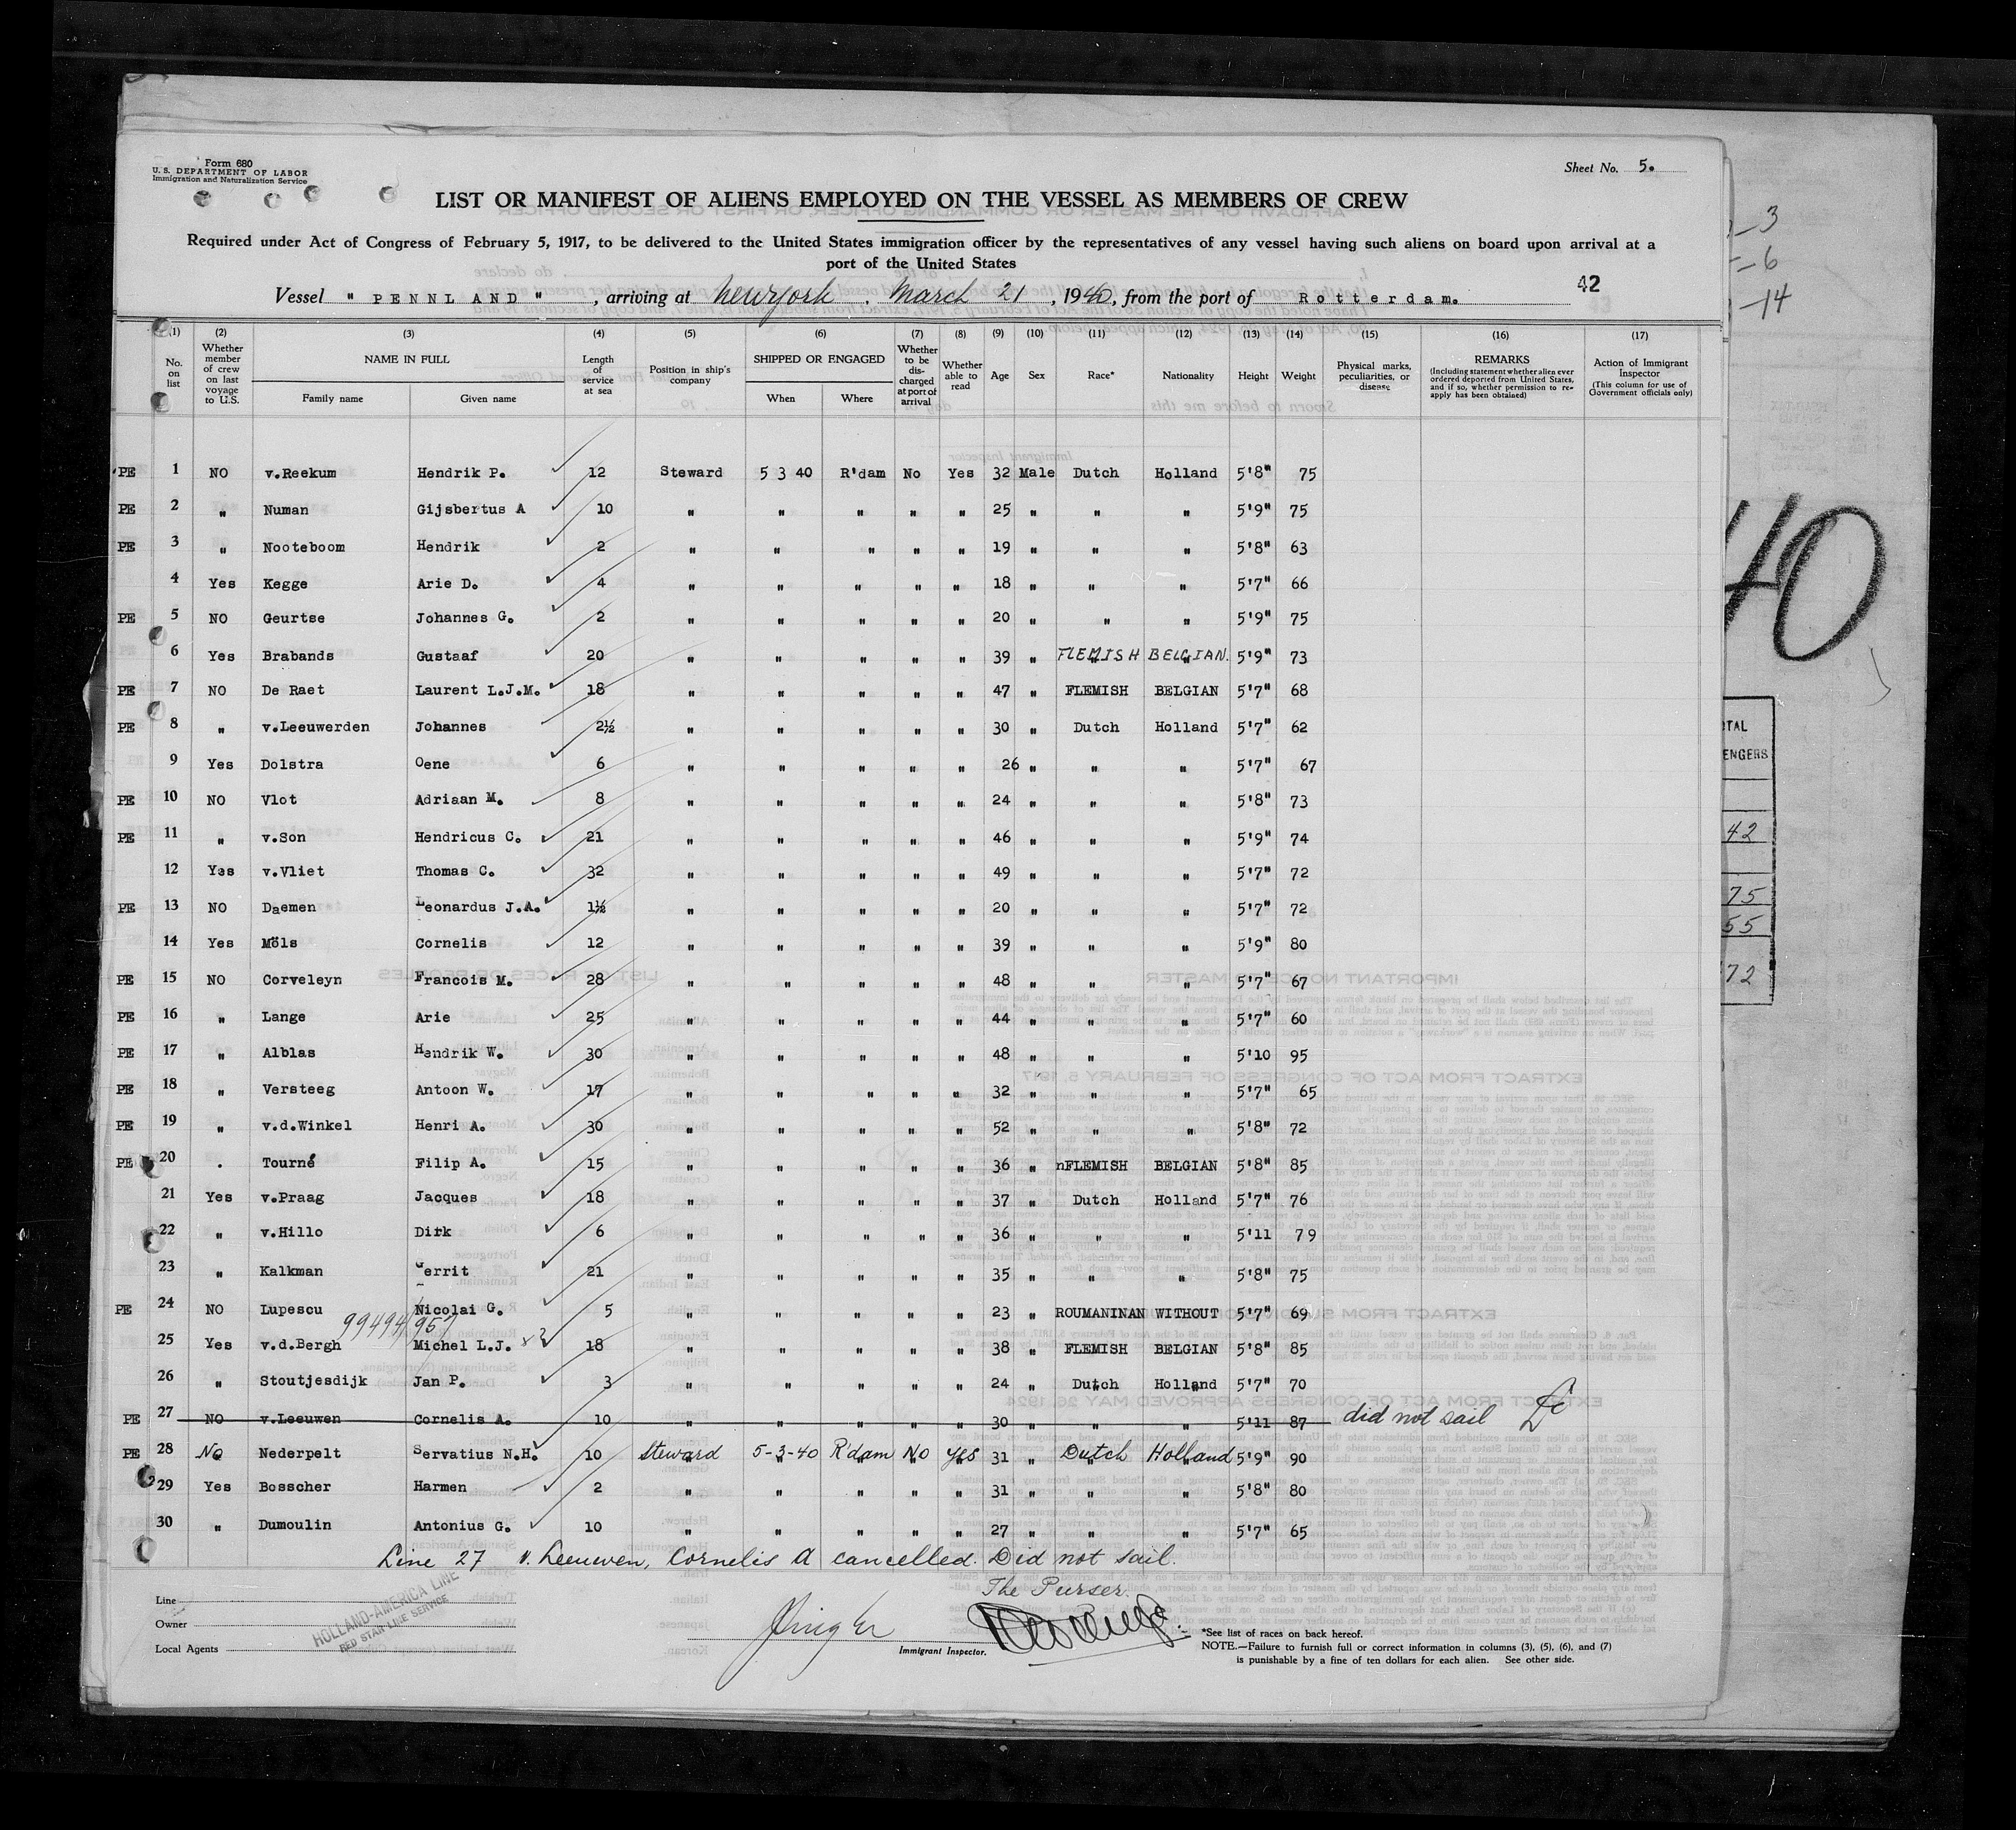 Form 680
U. S. DEPARTMENT OF LABOR
Immigration and Naturalization Service
Sheet No. 5.
LIST OR MANIFEST OF ALIENS EMPLOYED ON THE VESSEL AS MEMBERS OF CREW
Required under Act of Congress of February 5, 1917, to be delivered to the United States immigration officer by the representatives of any vessel having such aliens on board upon arrival at a
port of the United States
Vessel " PENNLAND ", arriving at New york, March 21, 1940, from the port of Rotterdam.
42
(1) (2) (3) (4) (5) (6) (7) (8) (9) (10) (11) (12) (13) (14) (15) (16) (17)
No. on list
Whether member of crew on last voyage to U.S.
NAME IN FULL
Family name Given name
Length of service at sea
Position in ship's company
SHIPPED OR ENGAGED
When Where
Whether to be discharged at port of arrival
Whether able to read
Age Sex Race* Nationality Height Weight
Physical marks, peculiarities, or disease
REMARKS
(Including statement whether alien ever ordered deported from United States, and if so, whether permission to reapply has been obtained)
Action of Immigrant Inspector
(This column for use of Government officials only)
PE 1 NO v.Reekum Hendrik P. 12 Steward 5 3 40 R'dam No Yes 32 Male Dutch Holland 5'8" 75
PE 2 " Numan Gijsbertus A 10 " " " " " 25 " " " 5'9" 75
PE 3 " Nooteboom Hendrik 2 " " " " " 19 " " " 5'8" 63
4 Yes Kegge Arie D. 4 " " " " " 18 " " " 5'7" 66
PE 5 NO Geurtse Johannes G. 2 " " " " " 20 " " " 5'9" 75
6 Yes Brabands Gustaaf 20 " " " " " 39 " FLEMISH BELGIAN. 5'9" 73
PE 7 NO De Raet Laurent L.J.M. 18 " " " " " 47 " FLEMISH BELGIAN 5'7" 68
PE 8 " v.Leeuwerden Johannes 2½ " " " " " 30 " Dutch Holland 5'7" 62
9 Yes Dolstra Oene 6 " " " " " 26 " " " 5'7" 67
PE 10 NO Vlot Adriaan M. 8 " " " " " 24 " " " 5'8" 73
PE 11 " v.Son Hendricus C. 21 " " " " " 46 " " " 5'9" 74
12 Yes v.Vliet Thomas C. 32 " " " " " 49 " " " 5'7" 72
PE 13 NO Daemen Leonardus J.A. 1½ " " " " " 20 " " " 5'7" 72
14 Yes Möls Cornelis 12 " " " " " 39 " " " 5'9" 80
PE 15 NO Corveleyn Francois M. 28 " " " " " 48 " " " 5'7" 67
PE 16 " Lange Arie 25 " " " " " 44 " " " 5'7" 60
PE 17 " Alblas Hendrik W. 30 " " " " " 48 " " " 5'10 95
PE 18 " Versteeg Antoon W. 17 " " " " " 32 " " " 5'7" 65
PE 19 " v.d.Winkel Henri A. 30 " " " " " 52 " " " 5'8" 72
PE 20 . Tourné Filip A. 15 " " " " " 36 " nFLEMISH BELGIAN 5'8" 85
21 Yes v.Praag Jacques 18 " " " " " 37 " Dutch Holland 5'7" 76
22 " v.Hillo Dirk 6 " " " " " 36 " " " 5'11 79
23 " Kalkman Gerrit 21 " " " " " 35 " " " 5'8" 75
PE 24 NO Lupescu Nicolai G. 5 " " " " " 23 " ROUMANINAN WITHOUT 5'7" 69
25 Yes v.d.Bergh Michel L.J. 18 " " " " " 38 " FLEMISH BELGIAN 5'8" 85
26 " Stoutjesdijk Jan P. 3 " " " " " 24 " Dutch Holland 5'7" 70
PE 27 NO v.Leeuwen Cornelis A. 10 " " " " " 30 " " " 5'11 87 did not sail
PE 28 No Nederpelt Servatius N.H. 10 Steward 5-3-40 R'dam No Yes 31 " Dutch Holland 5'9" 90
29 Yes Bosscher Harmen 2 " " " " " 31 " " " 5'8" 80
30 " Dumoulin Antonius G. 10 " " " " " 27 " " " 5'7" 65
Line 27 v. Leeuwen, Cornelis A cancelled. Did not sail.
The Purser.
Line
Owner
Local Agents
HOLLAND-AMERICA LINE
RED STAR LINE SERVICE
Immigrant Inspector.
*See list of races on back hereof.
NOTE.—Failure to furnish full or correct information in columns (3), (5), (6), and (7)
is punishable by a fine of ten dollars for each alien. See other side.
3
6
14
40
42
75
55
72